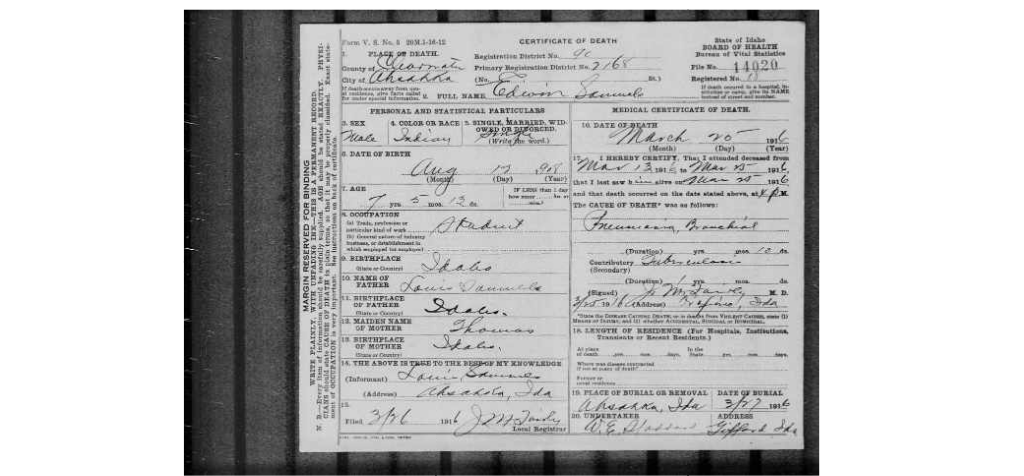 Form V. S. No. 5 20M.1-18-12
CERTIFICATE OF DEATH
State of Idaho
BOARD OF HEALTH
Bureau of Vital Statistics
1. PLACE OF DEATH.
Registration District No. 90
County of Clearwater
Primary Registration District No. 2168
File No. 14020
City of Ahsahka
(No. St.)
Registered No.
2. FULL NAME Edwin Samuels
PERSONAL AND STATISTICAL PARTICULARS
3. SEX 4. COLOR OR RACE 5. SINGLE, MARRIED, WIDOWED OR DIVORCED.
Male Indian Single (Write the word.)
6. DATE OF BIRTH
Aug 12 908
(Month) (Day) (Year)
7. AGE
7 yrs. mos. 13 ds.
IF LESS than 1 day
8. OCCUPATION
(a) Trade, profession or
particular kind of work Student
(b) General nature of industry
business, or establishment in
which employed (or employer)
9. BIRTHPLACE
(State or Country) Idaho
10. NAME OF
FATHER Louis Samuels
11. BIRTHPLACE
OF FATHER Idaho.
(State or Country)
12. MAIDEN NAME
OF MOTHER Thomas
13. BIRTHPLACE
OF MOTHER Idaho.
(State or Country)
14. THE ABOVE IS TRUE TO THE BEST OF MY KNOWLEDGE
(Informant) Louis Samuels
(Address) Ahsahka, Ida
15.
Filed 3/26 1916
Local Registrar
MEDICAL CERTIFICATE OF DEATH.
16. DATE OF DEATH
March 25 1916
(Month) (Day) (Year)
17. I HEREBY CERTIFY, That I attended deceased from
Mar 13 1916 to Mar 25 1916
that I last saw him alive on Mar 25 1916
and that death occurred on the date stated above, at 4 P.M.
The CAUSE OF DEATH* was as follows:
Pneumonia, Bronchial
(Duration) yrs. mos. 12 ds.
Contributory Tuberculosis
(Secondary)
(Duration) yrs. mos. ds.
(Signed) M. D.
3/25 1916 (Address) Ida
18. LENGTH OF RESIDENCE (For Hospitals, Institutions,
Transients or Recent Residents.)
At place
of death yrs. mos. days.
In the
State yrs. mos. days.
Where was disease contracted
if not at place of death?
Former or
usual residence
19. PLACE OF BURIAL OR REMOVAL DATE OF BURIAL
Ahsahka, Ida 3/27 1916
20. UNDERTAKER ADDRESS
W. E. Gifford Ida
MARGIN RESERVED FOR BINDING
WRITE PLAINLY, WITH UNFADING INK—THIS IS A PERMANENT RECORD.
N. B.—Every item of information should be carefully supplied. AGE should be stated EXACTLY. PHYSICIANS should state CAUSE OF DEATH in plain terms, so that it may be properly classified. Exact statement of OCCUPATION is very important. See instructions on back of certificate.